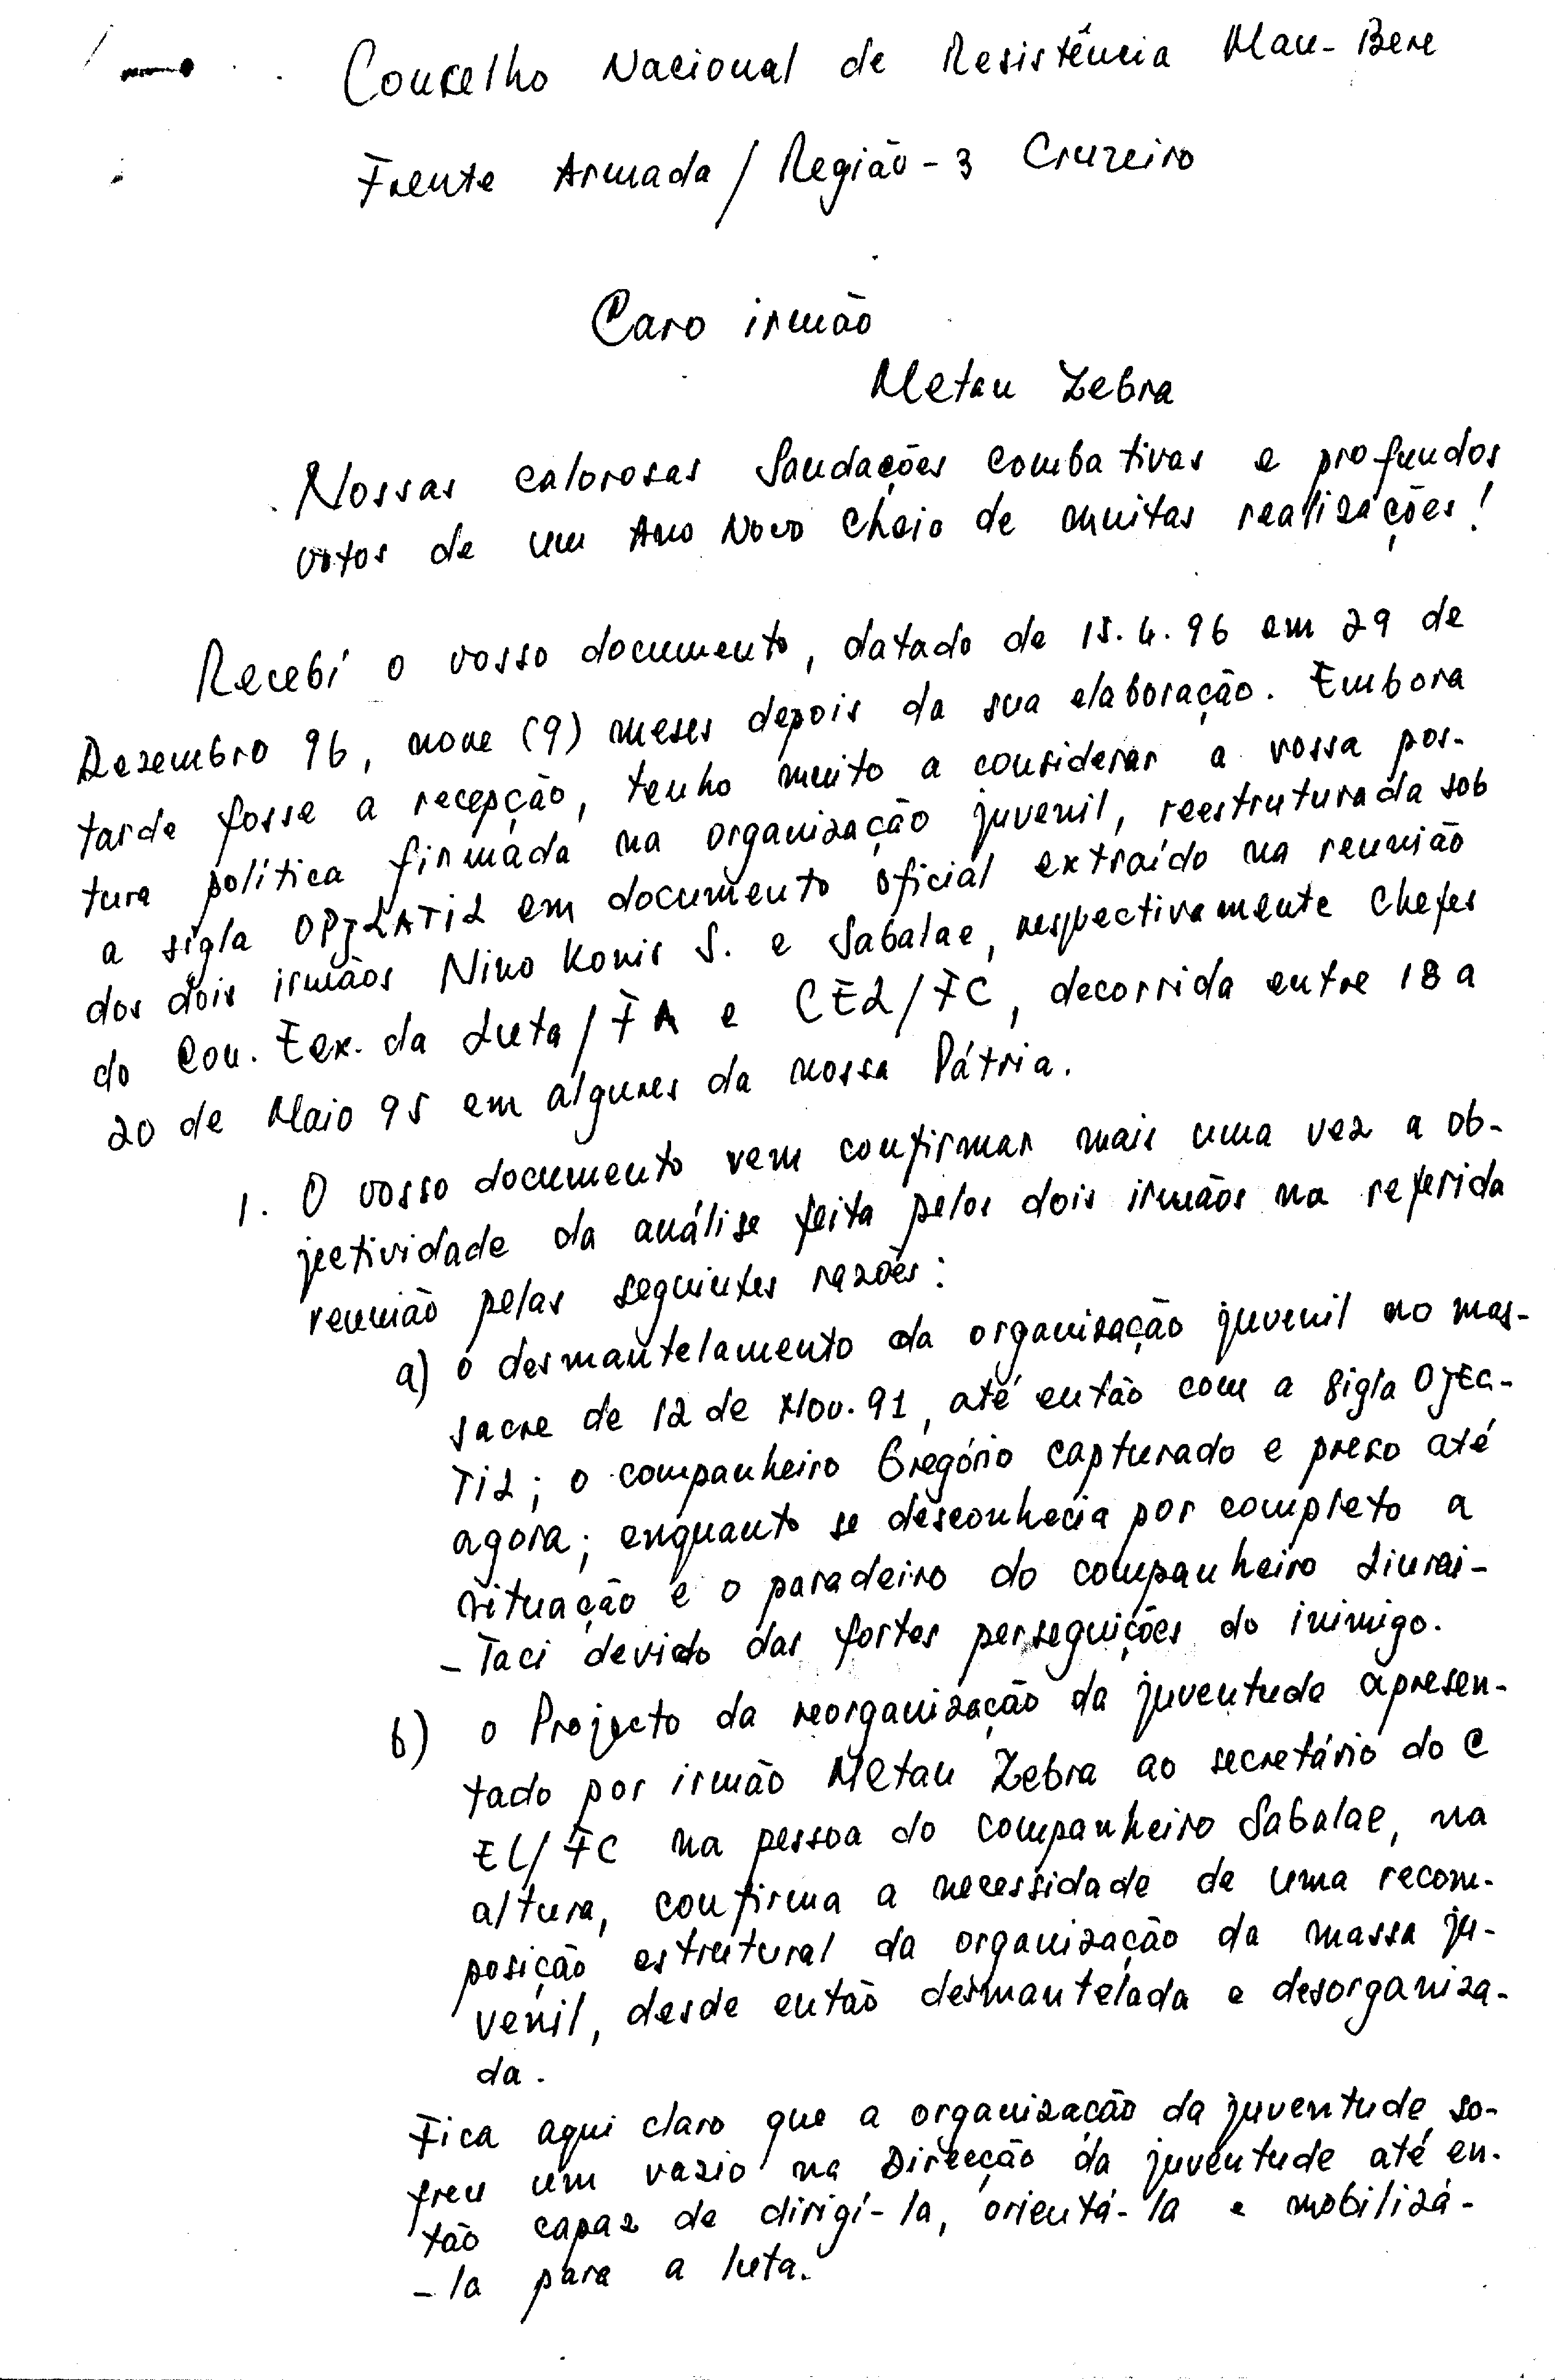 Concelho Nacional de Resistência Mau-Bere
Frente Armada / Região-3 Cruzeiro
Caro irmão
Metau Zebra
Nossas calorosas Saudações combativas e profundos
votos de um Ano Novo cheio de muitas realizações!
Recebí o vosso documento, datado de 15.4.96 em 29 de
Dezembro 96, nove (9) meses depois da sua elaboração. Embora
tarde fosse a recepção, tenho muito a considerar a vossa pos-
tura política firmada na organização juvenil, reestruturada sob
a sigla OPJLATIL em documento oficial extraído na reunião
dos dois irmãos Nino Konis S. e Sabalae, respectivamente Chefes
do Con. Eex. da Luta/FA e CEL/FC, decorrida entre 18 a
20 de Maio 95 em algures da nossa Pátria.
1. O vosso documento vem confirmar mais uma vez a ob-
jectividade da análise feita pelos dois irmãos na referida
reunião pelas seguintes razões:
a) o desmantelamento da organização juvenil no mas-
sacre de 12 de Nov. 91, até então com a sigla OJEC-
TIL; o companheiro Gregório capturado e preso até
agora; enquanto se desconhecia por completo a
situação e o paradeiro do companheiro Liurai-
-Taci devido das fortes perseguições do inimigo.
b) o Projecto da reorganização da juventude apresen-
tado por irmão Metau Zebra ao secretário do C
EL/FC na pessoa do companheiro Sabalae, na
altura, confirma a necessidade de uma recom-
posição estrutural da organização da massa ju-
venil, desde então desmantelada e desorganiza-
da.
Fica aqui claro que a organização da juventude so-
freu um vazio na Direcção da juventude até en-
tão capaz de dirigí-la, orientá-la e mobilizá-
-la para a luta.